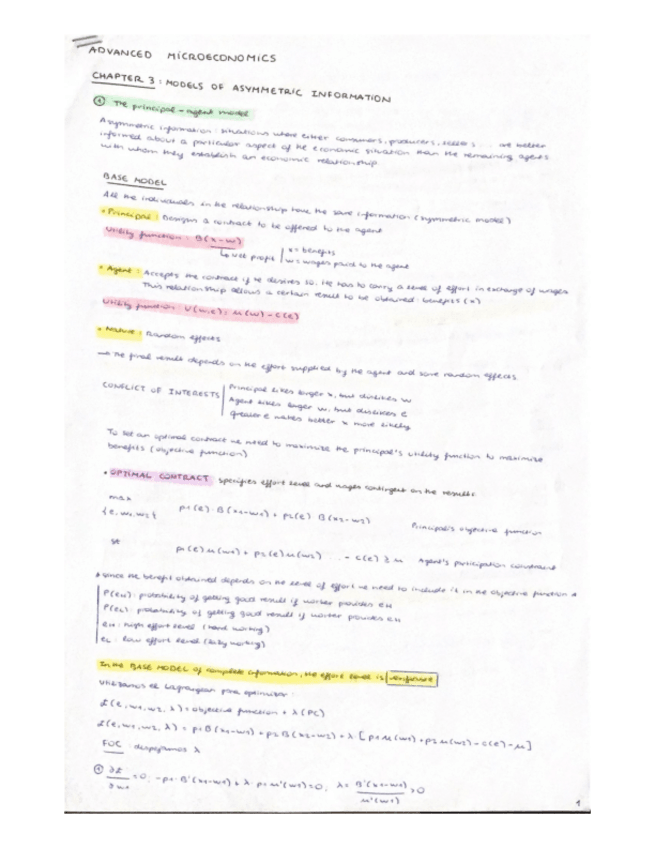 ADVANCED MICROECONOMICS
CHAPTER 3: MODELS OF ASYMMETRIC INFORMATION
① The principal-agent model
Asymmetric information: situations where either consumers, producers, ... are better
informed about a particular aspect of the economic situation than the remaining agents
with whom they establish an economic relationship.
BASE MODEL
All the individuals in the relationship have the same information (symmetric model)
• Principal: Designs a contract to be offered to the agent
Utility function: B(x-w)
↳ net profit | x = benefits
w = wages paid to the agent
• Agent: Accepts the contract if he desires so. He has to carry a level of effort in exchange of wages.
This relationship allows a certain result to be obtained: benefits (x)
Utility function: U(w,e) = u(w) - c(e)
• Nature: Random effects
→ The final result depends on the effort supplied by the agent and some random effects
CONFLICT OF INTERESTS | Principal likes larger x, but dislikes w
Agent likes larger w, but dislikes e
greater e makes better x more likely
To set an optimal contract we need to maximize the principal's utility function to maximize
benefits (objective function)
• OPTIMAL CONTRACT specifies effort level and wages contingent on the results
max
{e, w1, w2} p1(e) · B(x1-w1) + p2(e) · B(x2-w2) Principal's objective function
st p1(e) u(w1) + p2(e) u(w2) ... - c(e) ≥ u Agent's participation constraint
since the benefit obtained depends on the level of effort we need to include it in the objective function
P(eH): probability of getting good result if worker provides eH
P(eL): probability of getting good result if worker provides eH
eH: high effort level (hard working)
eL: low effort level (lazy working)
In the BASE MODEL of complete information, the effort level is verifiable
Utilizamos el Lagrangian para optimizar:
L(e, w1, w2, λ) = objective function + λ(PC)
L(e, w1, w2, λ) = p1 B(x1-w1) + p2 B(x2-w2) + λ [p1 u(w1) + p2 u(w2) - c(e) - u]
FOC despejamos λ
① ∂L/∂w1 = 0; -p1 · B'(x1-w1) + λ · p1 u'(w1) = 0; λ = B'(x1-w1)/u'(w1) > 0
1